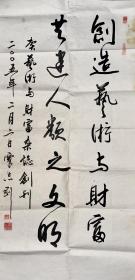 創造藝術与財富
共建人類之文明
賀藝術与財富杂誌創刊
二〇〇五年二月二日